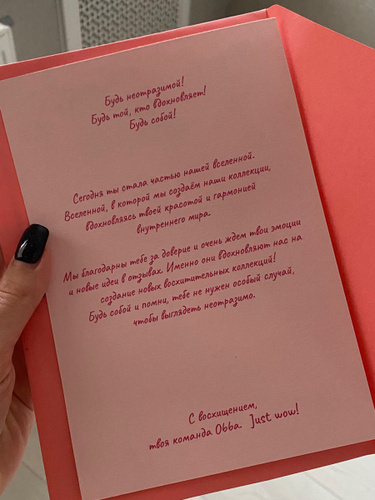 Будь неотразимой!
Будь той, кто вдохновляет!
Будь собой!
Сегодня ты стала частью нашей вселенной.
Вселенной, в которой мы создаём наши коллекции,
вдохновляясь твоей красотой и гармонией
внутреннего мира.
Мы благодарны тебе за доверие и очень ждем твои эмоции
и новые идеи в отзывах. Именно они вдохновляют нас на
создание новых восхитительных коллекций!
Будь собой и помни, тебе не нужен особый случай,
чтобы выглядеть неотразимо.
С восхищением,
твоя команда Obba Just wow!